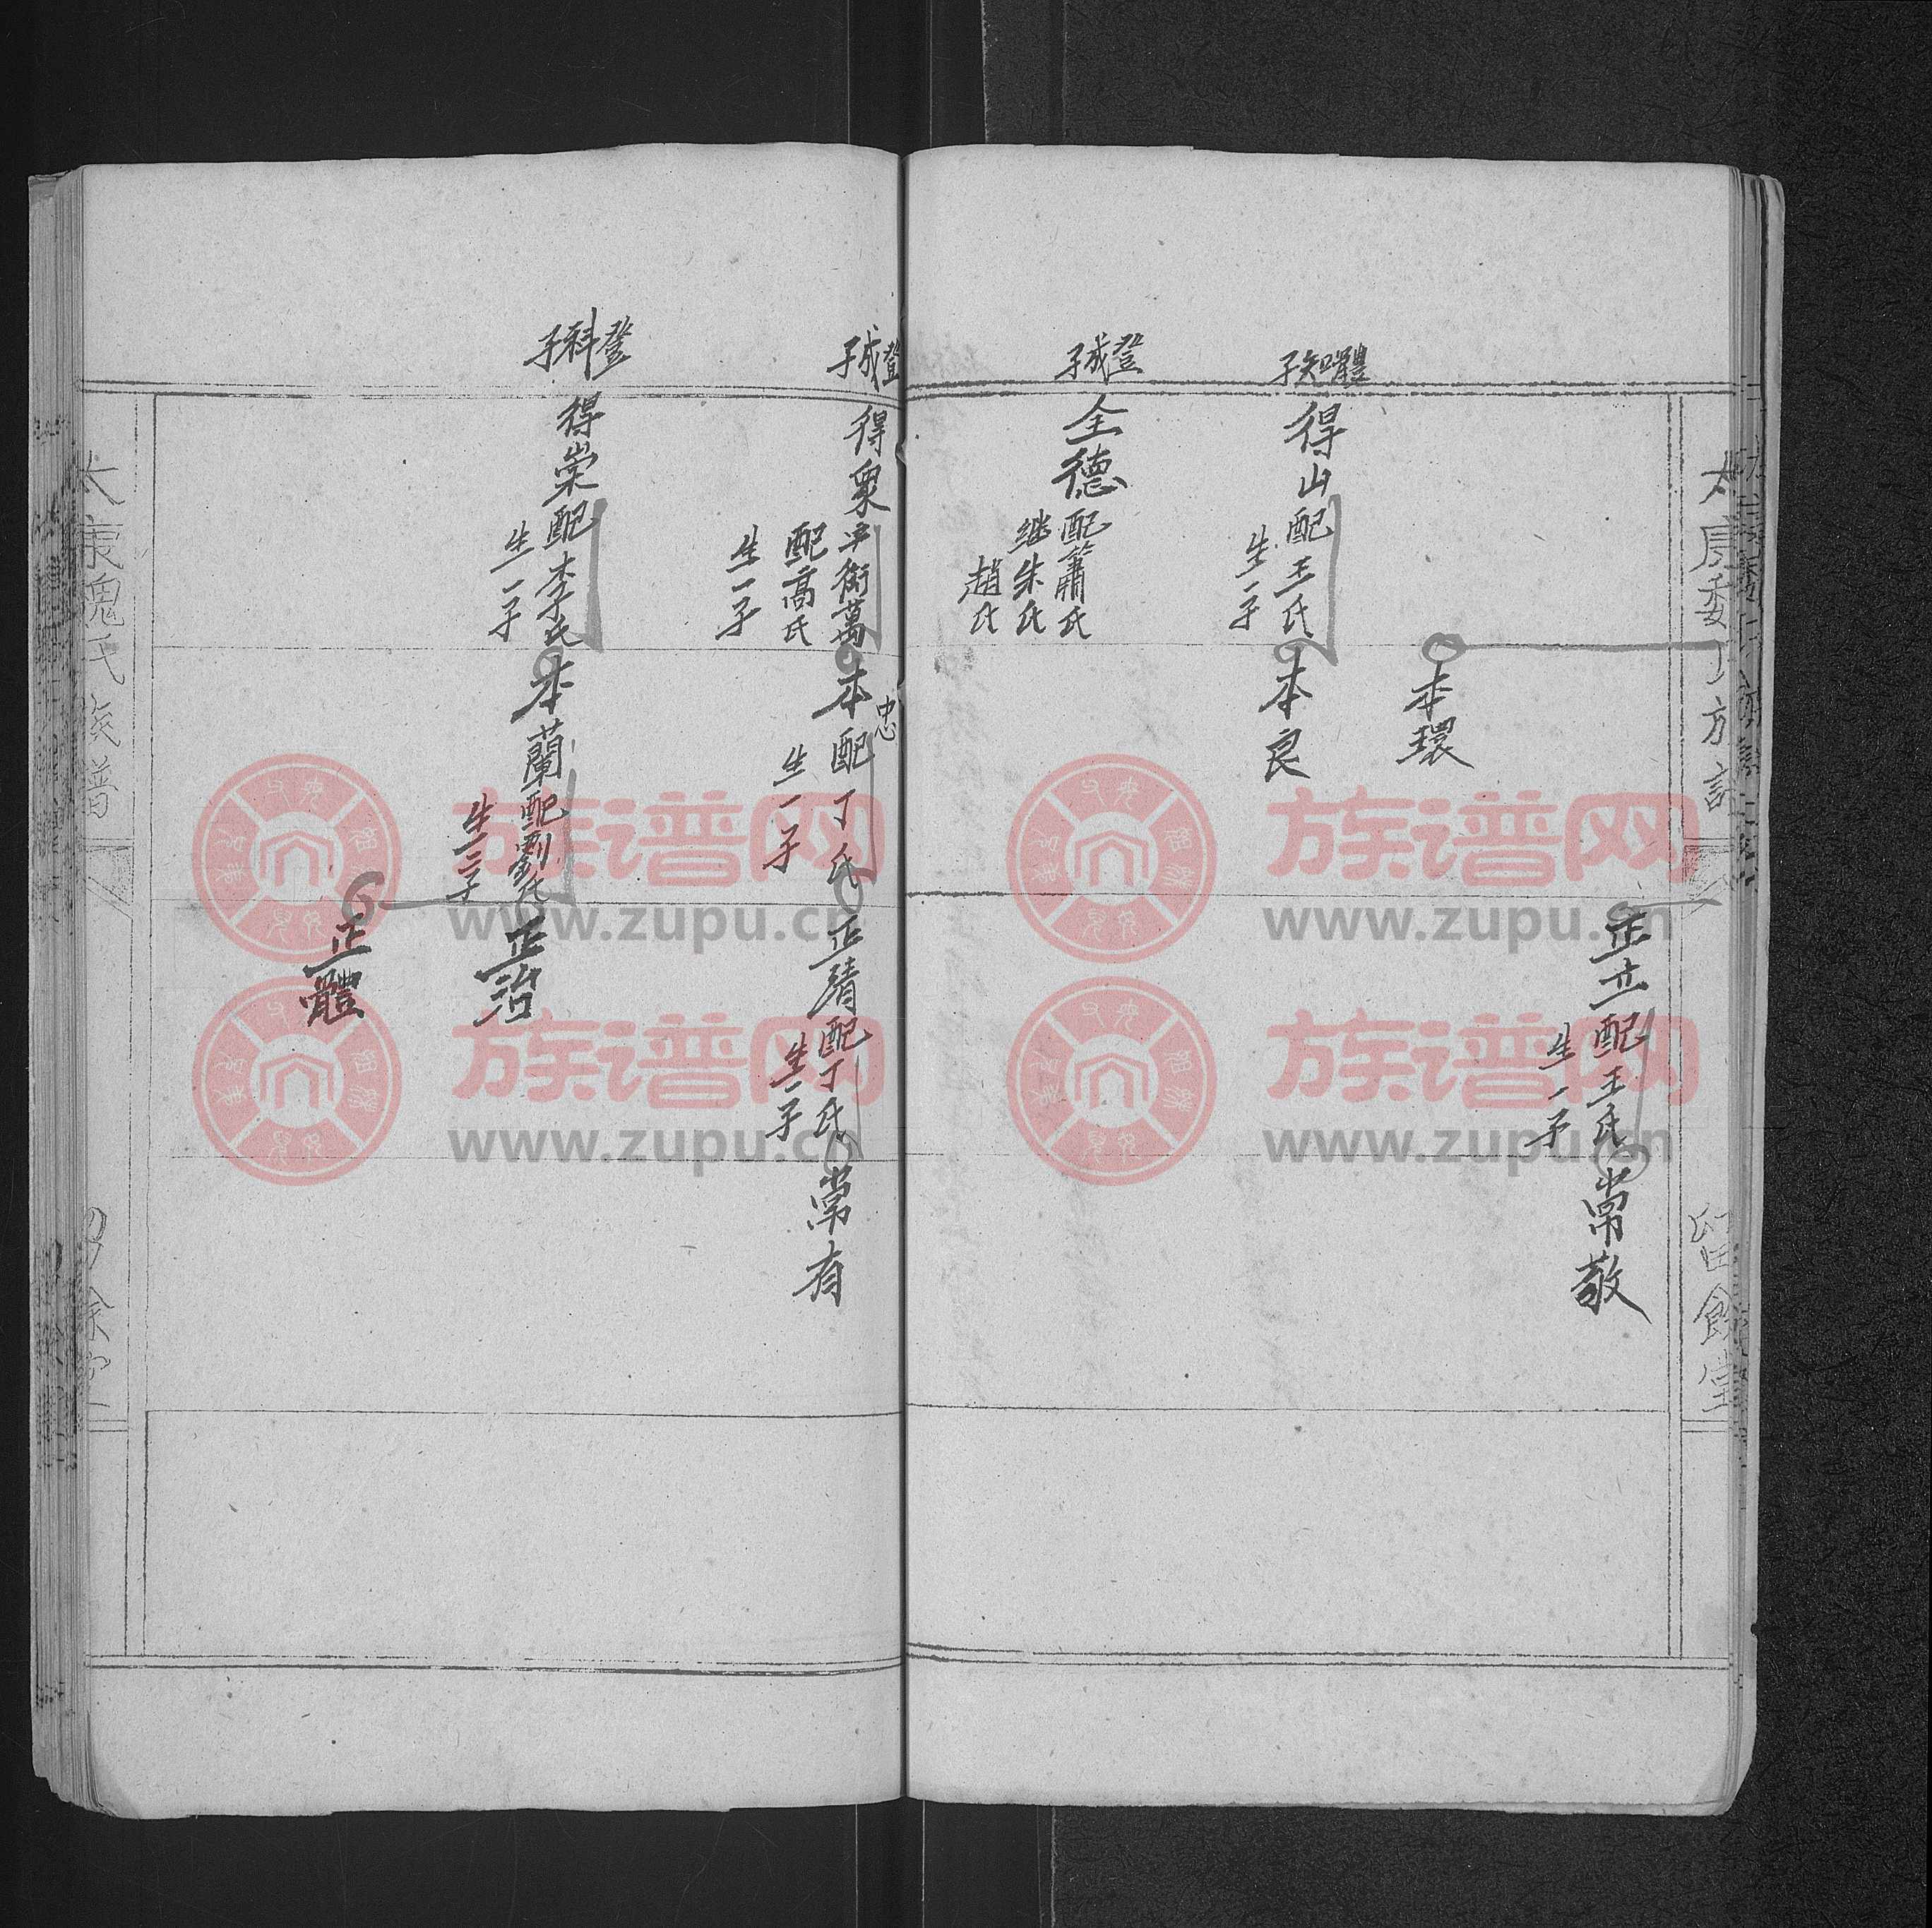 留餘堂
正立配王氏
生一子
常敬
本環
體知子
得山配王氏
生一子
本良
登成子
全德配蕭氏
继朱氏
趙氏
登成子
得衆字衡萬
配高氏
生一子
本忠配丁氏
生一子
正清配丁氏
生一子
常有
登科子
得崇配李氏
生一子
本蘭配劉氏
生二子
正治
正體
族谱网
www.zupu.cn
族谱网
www.zupu.cn
族谱网
www.zupu.cn
族谱网
www.zupu.cn